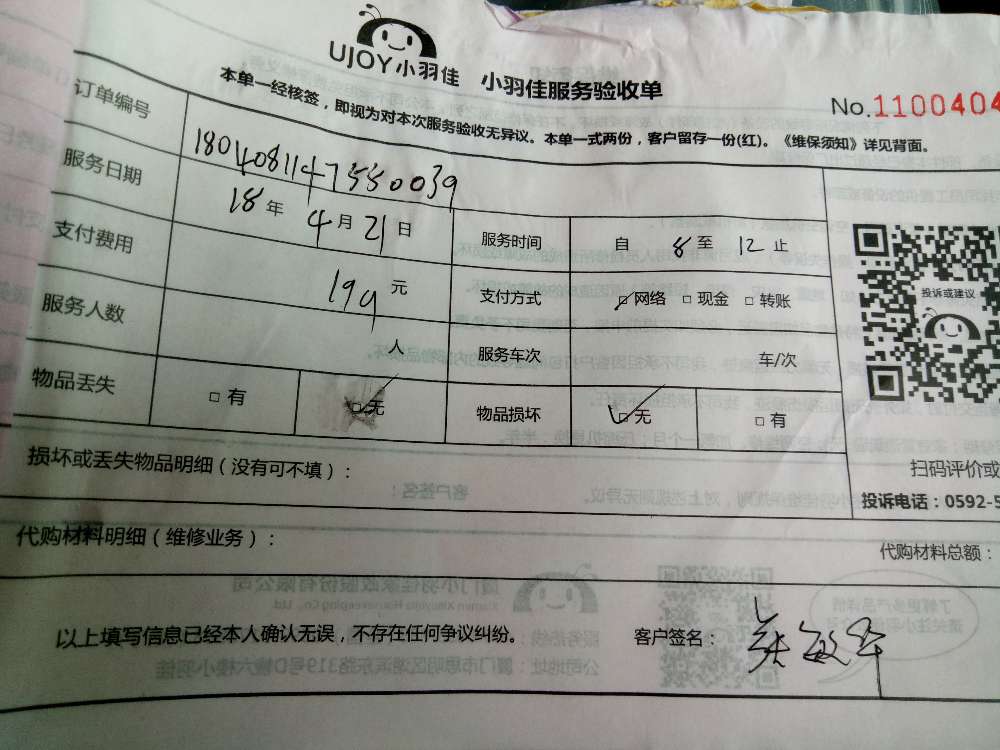 UJOY小羽佳 小羽佳服务验收单
No.1100404
本单一经核签，即视为对本次服务验收无异议。本单一式两份，客户留存一份(红)。《维保须知》详见背面。
订单编号 1804081147550039
服务日期 18年4月21日 服务时间 自8至12止
支付费用 199元 支付方式 □网络 □现金 □转账
服务人数 人 服务车次 车/次
物品丢失 □有 □无 物品损坏 □无 □有
投诉或建议
扫码评价或
投诉电话：0592-5
损坏或丢失物品明细（没有可不填）：
代购材料明细（维修业务）：
代购材料总额：
以上填写信息已经本人确认无误，不存在任何争议纠纷。 客户签名：